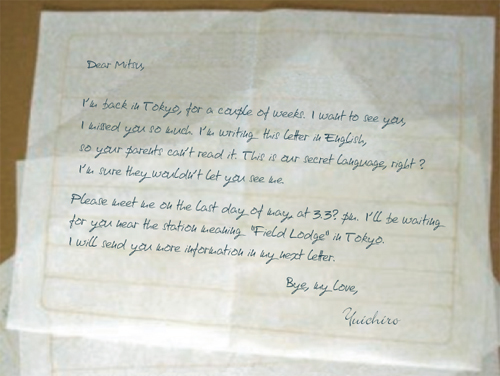 Dear Mitsu,
I'm back in Tokyo, for a couple of weeks. I want to see you,
I missed you so much. I'm writing this letter in English,
so your parents can't read it. This is our secret language, right?
I'm sure they wouldn't let you see me.
Please meet me on the last day of may, at 3 3? pm. I'll be waiting
for you near the station meaning "Field Lodge" in Tokyo.
I will send you more information in my next letter.
Bye, my love,
Yuichiro